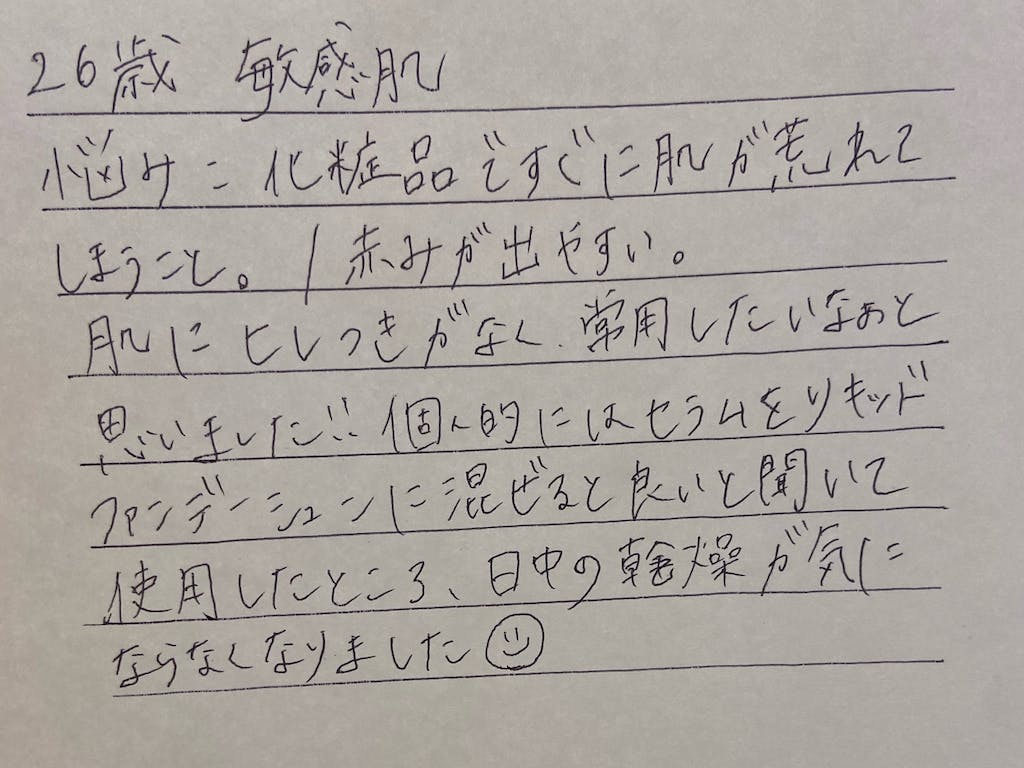 26歳 敏感肌
悩み：化粧品ですぐに肌が荒れて
しまうこと。/赤みが出やすい。
肌にヒレつきがなく、常用したいなぁと
思いました!! 個人的にはセラムをリキッド
ファンデーションに混ぜると良いと聞いて
使用したところ、日中の乾燥が気に
ならなくなりました☺